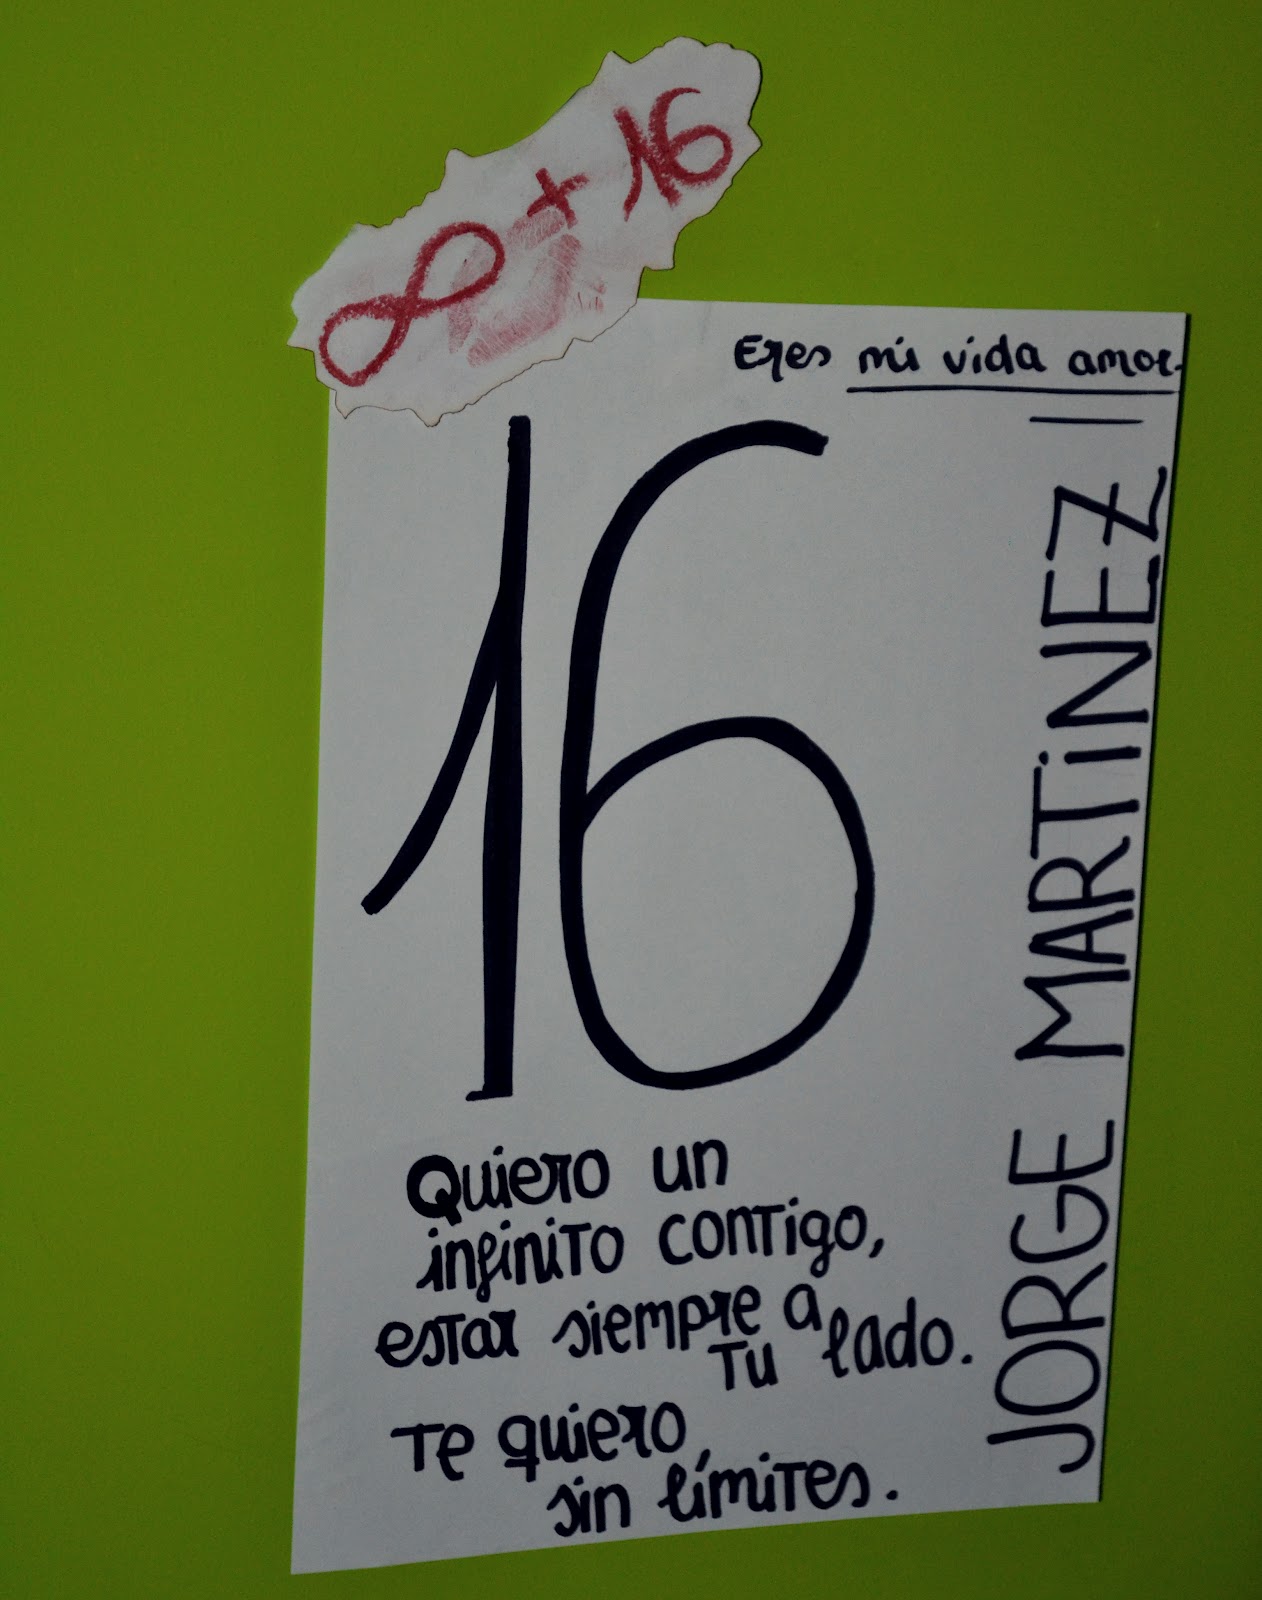 ∞ + 16
Eres mi vida amor.
16
Quiero un
infinito contigo,
estar siempre a
tu lado.
Te quiero
sin límites.
JORGE MARTiNEZ